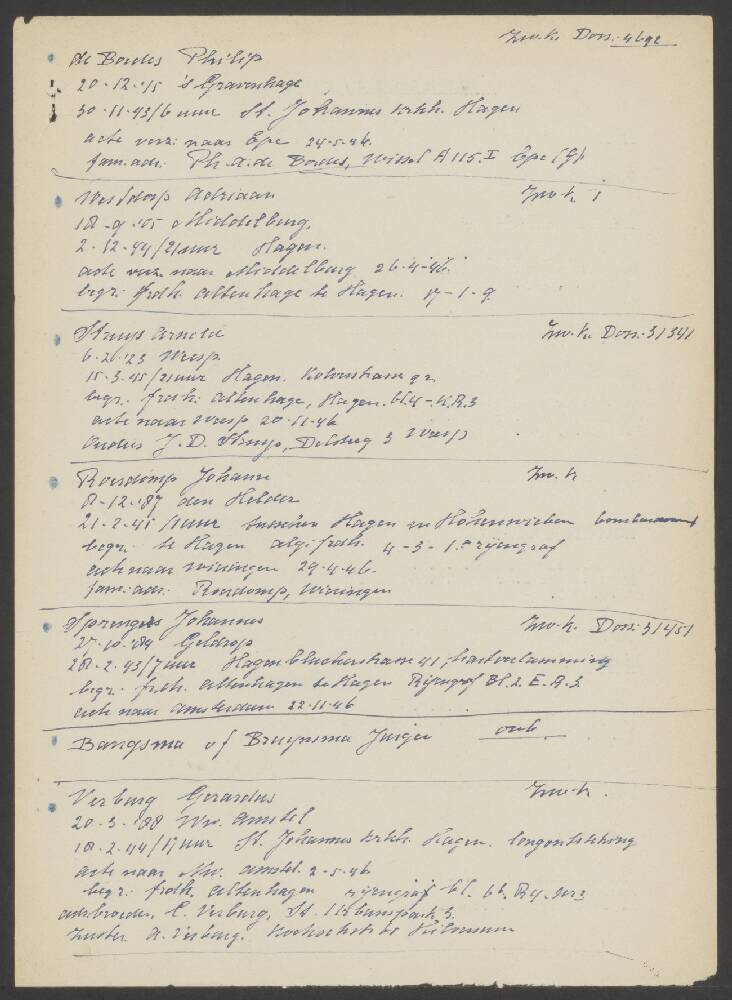 Inw.k. Doss. 4692
de Bordes Philip
20-12-'15 's Gravenhage
30-11-43/6 uur St. Johannes krkh. Hagen
acte verz. naar Epe 24-5-46.
fam. adr. Ph. A. de Bordes, Wissel A 115. I Epe (G)
Westdorp Adriaan Inw.k.
18-9-'05 Middelburg.
2-12-44/21 uur Hagen.
acte verz. naar Middelburg 26-4-46.
begr. frdh. Altenhage te Hagen. 17-1-9.
Struys Arnold Inw.k. Doss. 31341
6-2-'23 Weesp
15-3-45/21 uur Hagen. 92
begr. frdh. Altenhage, Hagen. bl. 4-K.R.3
acte naar Weesp 20-11-46
Ouders J.D. Struys, 3 Weesp
Roerdomp Johann Inw.k
8-12-'87 den Helder
21-2-45/1 uur tusschen Hagen en bombardement
begr. te Hagen alg. frdh. 4-3-1e rijengraf
acte naar Wieringen 29-4-46.
fam. adr. Roerdomp, Wieringen
Springers Johannes Inw.k. Doss. 31451
27-10-'84 Geldrop
28-2-43/7 uur Hagen Blucherstrasse 41, hartverlamming
begr. frdh. Altenhagen te Hagen Rijengraf Bl. 2. E. R. 3
acte naar Amsterdam 22-11-46
Bangsma of Bruynsma Jurgen onb.
Verburg Gerardus Inw.k.
20-3-'88 Nw. Amstel
18-2-44/17 uur St. Johannes krkh. Hagen. longontsteking
acte naar Nw. Amstel 2-5-46
begr. frdh. Altenhagen rijengraf bl. 6b. R4. Nr3
adr. broeder, C. Verburg, St.
zuster A. Verburg. Hilversum